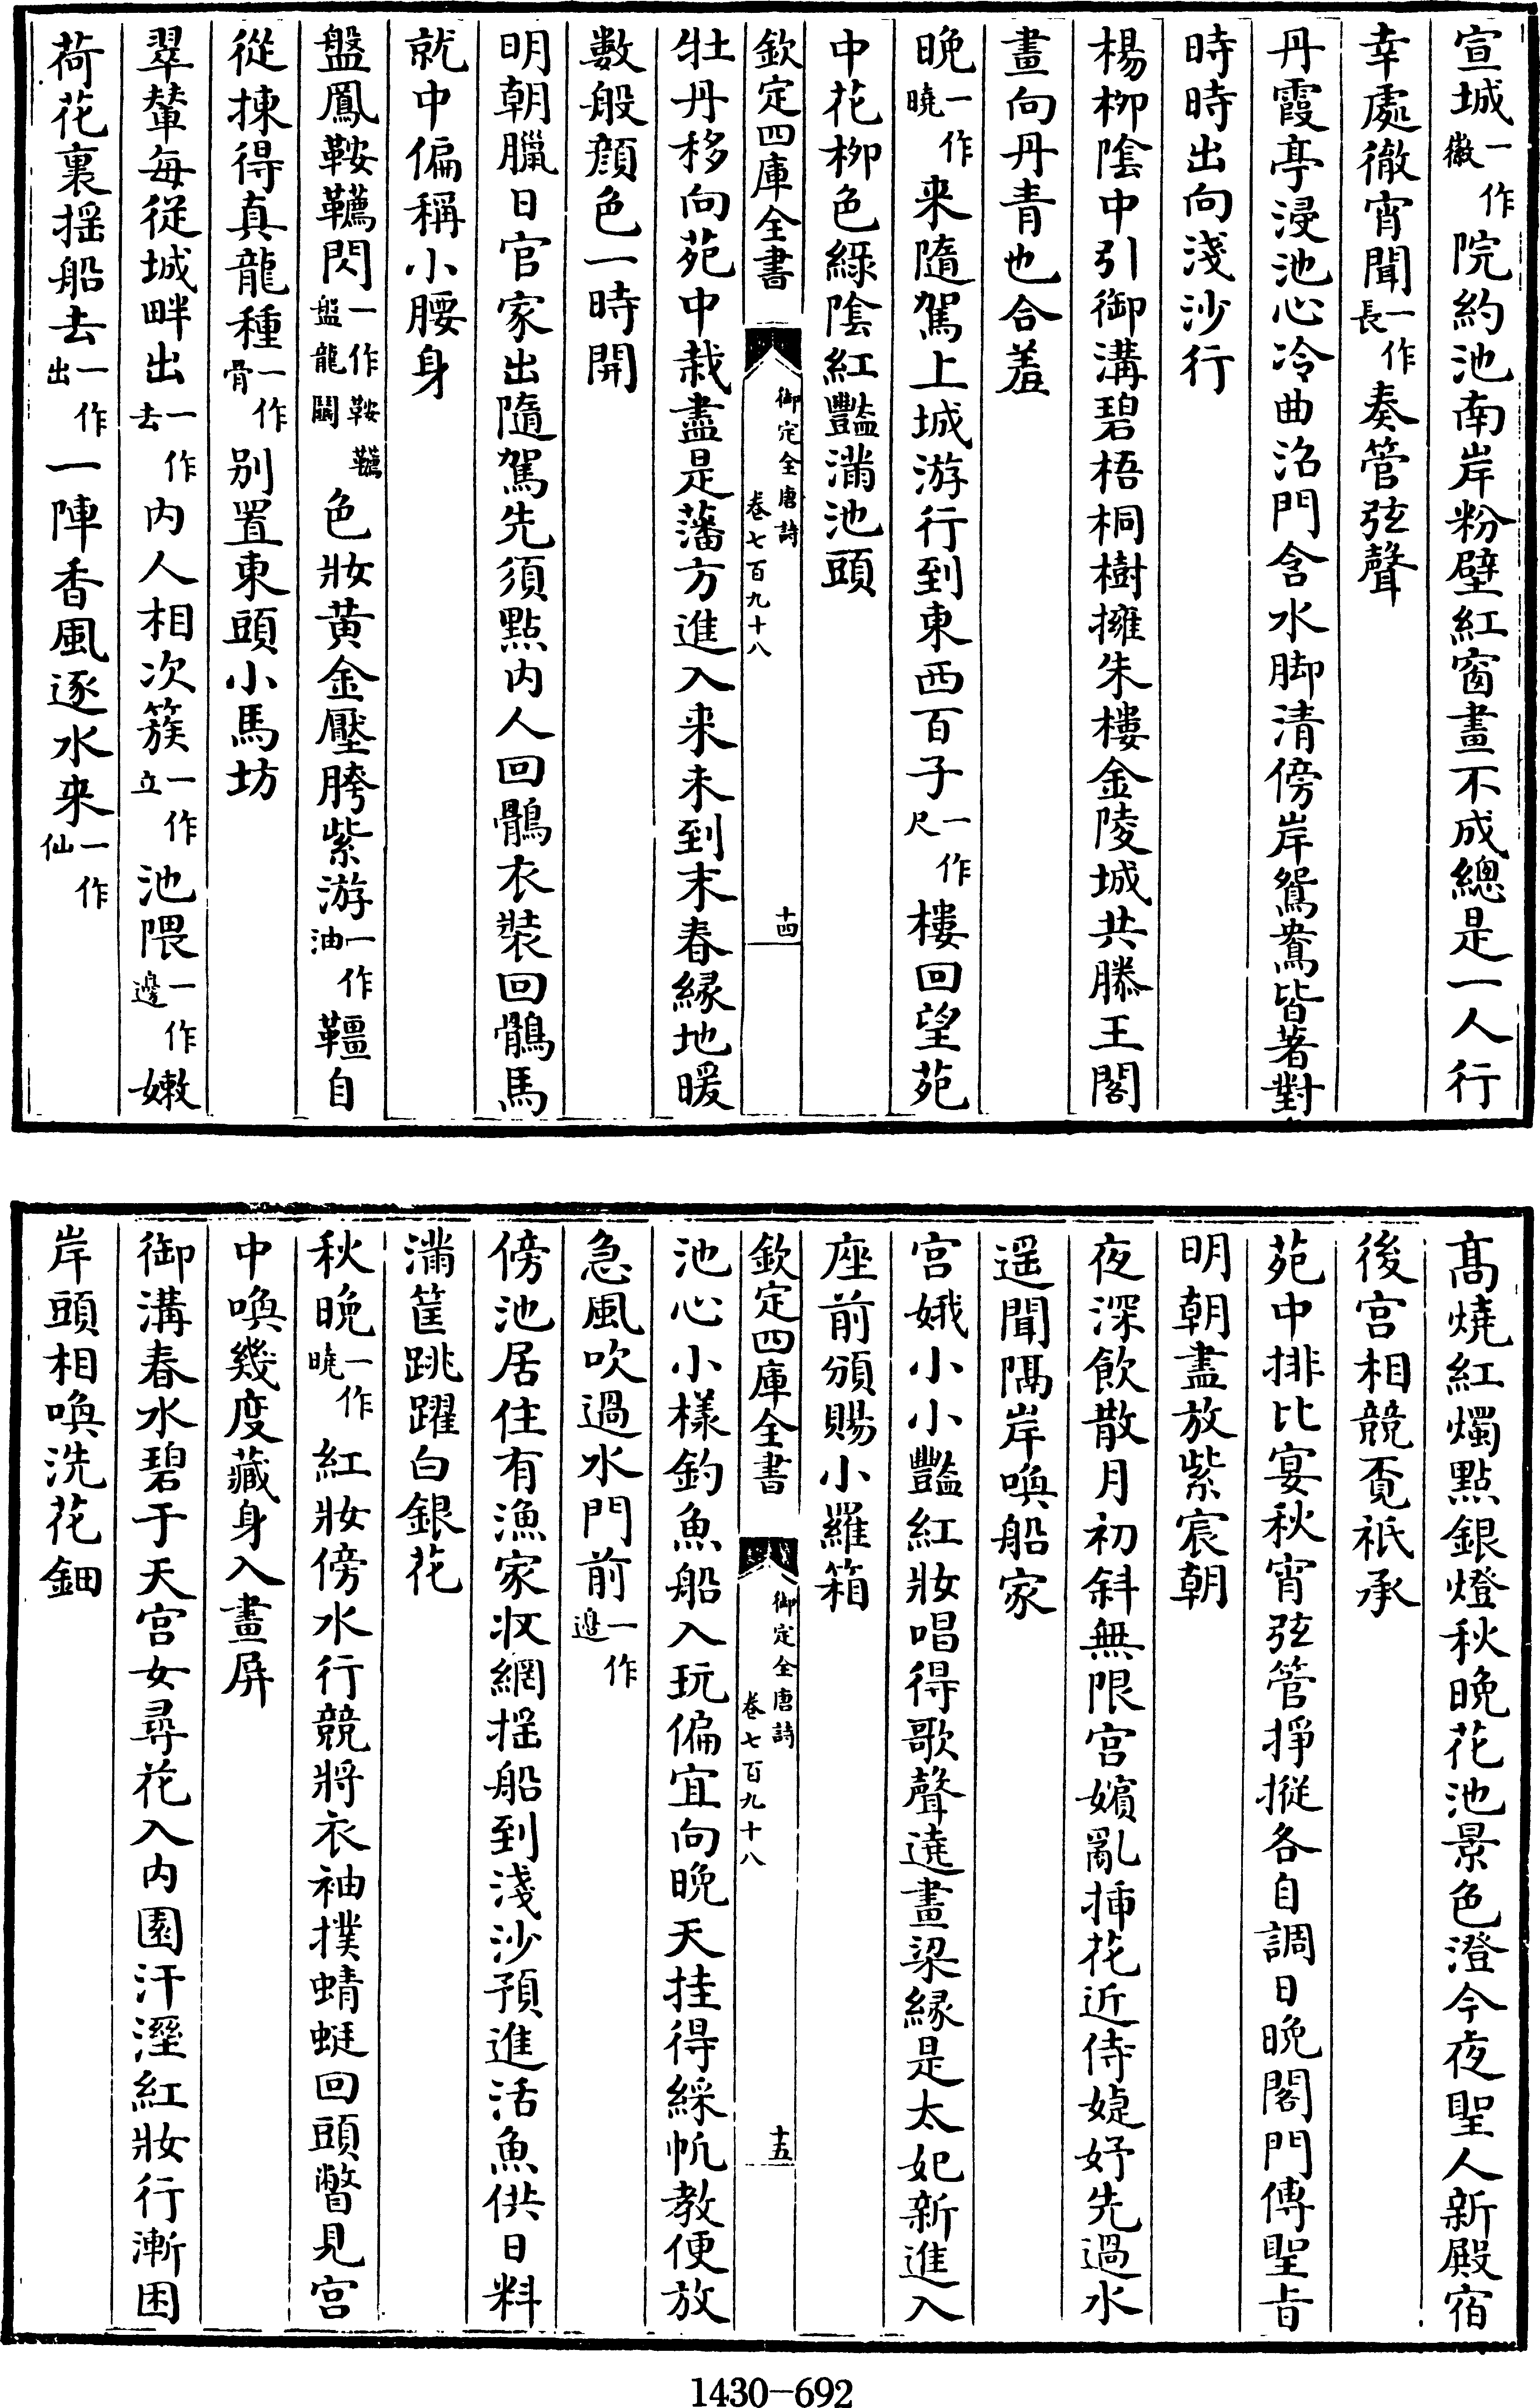 宣城一作徽院約池南岸粉壁紅窗畫不成總是一人行
幸處徹宵聞一作長奏管弦聲
丹霞亭浸池心冷曲沼門含水脚清傍岸鴛鴦皆著對
時時出向淺沙行
楊柳陰中引御溝碧梧桐樹擁朱樓金陵城共滕王閣
畫向丹青也合羞
晚一作曉来隨駕上城游行到東西百子一作尺樓回望苑
中花柳色綠陰紅豔滿池頭
欽定四庫全書
御定全唐詩
卷七百九十八
十四
牡丹移向苑中栽盡是藩方進入来未到末春緣地暖
數般顔色一時開
明朝臘日官家出隨駕先須點内人回鶻衣裝回鶻馬
就中偏稱小腰身
盤鳳鞍韉閃一作鞍韉盤龍鬬色妝黄金壓胯紫游一作油韁自
從揀得真龍種一作骨别置東頭小馬坊
翠輦每從城畔出一作去内人相次簇一作立池隈一作邊嫩
荷花裏摇船去一作出一陣香風逐水来一作仙
髙燒紅燭點銀燈秋晚花池景色澄今夜聖人新殿宿
後宫相競覔祇承
苑中排比宴秋宵弦管掙摐各自調日晚閣門傳聖㫖
明朝盡放紫宸朝
夜深飲散月初斜無限宫嬪亂揷花近侍婕妤先過水
遥聞隔岸喚船家
宫娥小小豔紅妝唱得歌聲遶畫梁緣是太妃新進入
座前頒賜小羅箱
欽定四庫全書
御定全唐詩
卷七百九十八
十五
池心小樣釣魚船入玩偏宜向晚天挂得綵帆教便放
急風吹過水門前一作邉
傍池居住有漁家收網摇船到淺沙預進活魚供日料
滿筐跳躍白銀花
秋晚一作曉紅妝傍水行競將衣袖撲蜻蜓回頭瞥見宫
中喚幾度藏身入畫屏
御溝春水碧于天宫女尋花入内園汗溼紅妝行漸困
岸頭相喚洗花鈿
1430-692